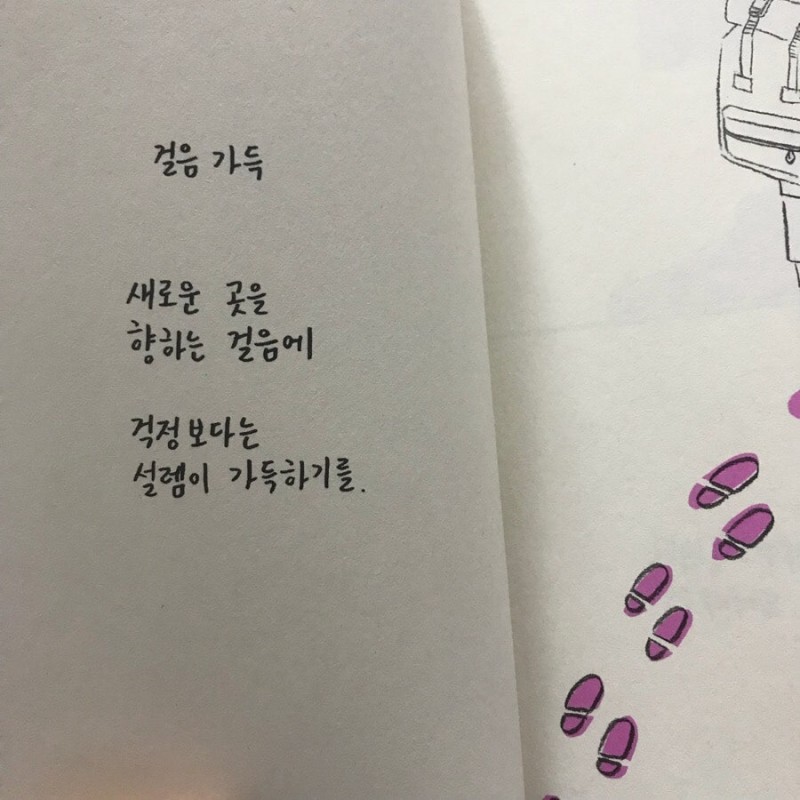 걸음 가득
새로운 곳을
향하는 걸음에
걱정보다는
설렘이 가득하기를.